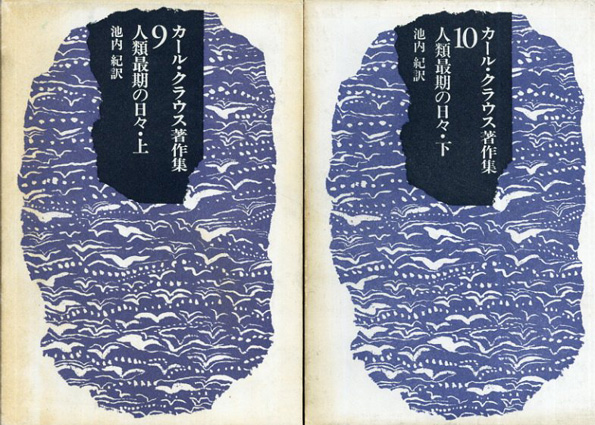 カール・クラウス著作集
9
人類最期の日々・上
池内 紀訳
カール・クラウス著作集
10
人類最期の日々・下
池内 紀訳